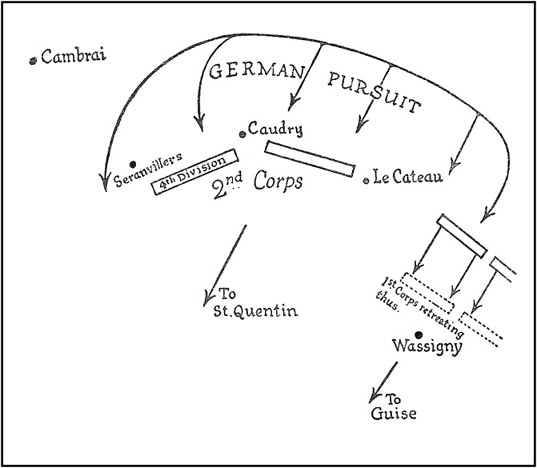 Cambrai
GERMAN PURSUIT
Caudry
Seranvillers
4th Division
2nd Corps
Le Cateau
To
St. Quentin
1st Corps retreating
thus.
Wassigny
To
Guise